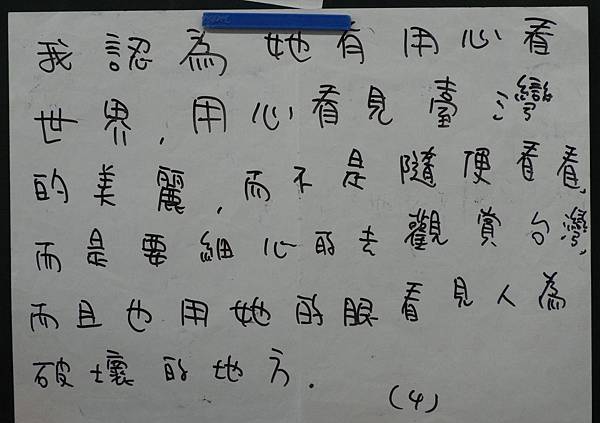 我認為她有用心看
世界,用心看見臺灣
的美麗,而不是隨便看看,
而是要細心的去觀賞台灣,
而且也用她的眼看見人為
破壞的地方.
(4)